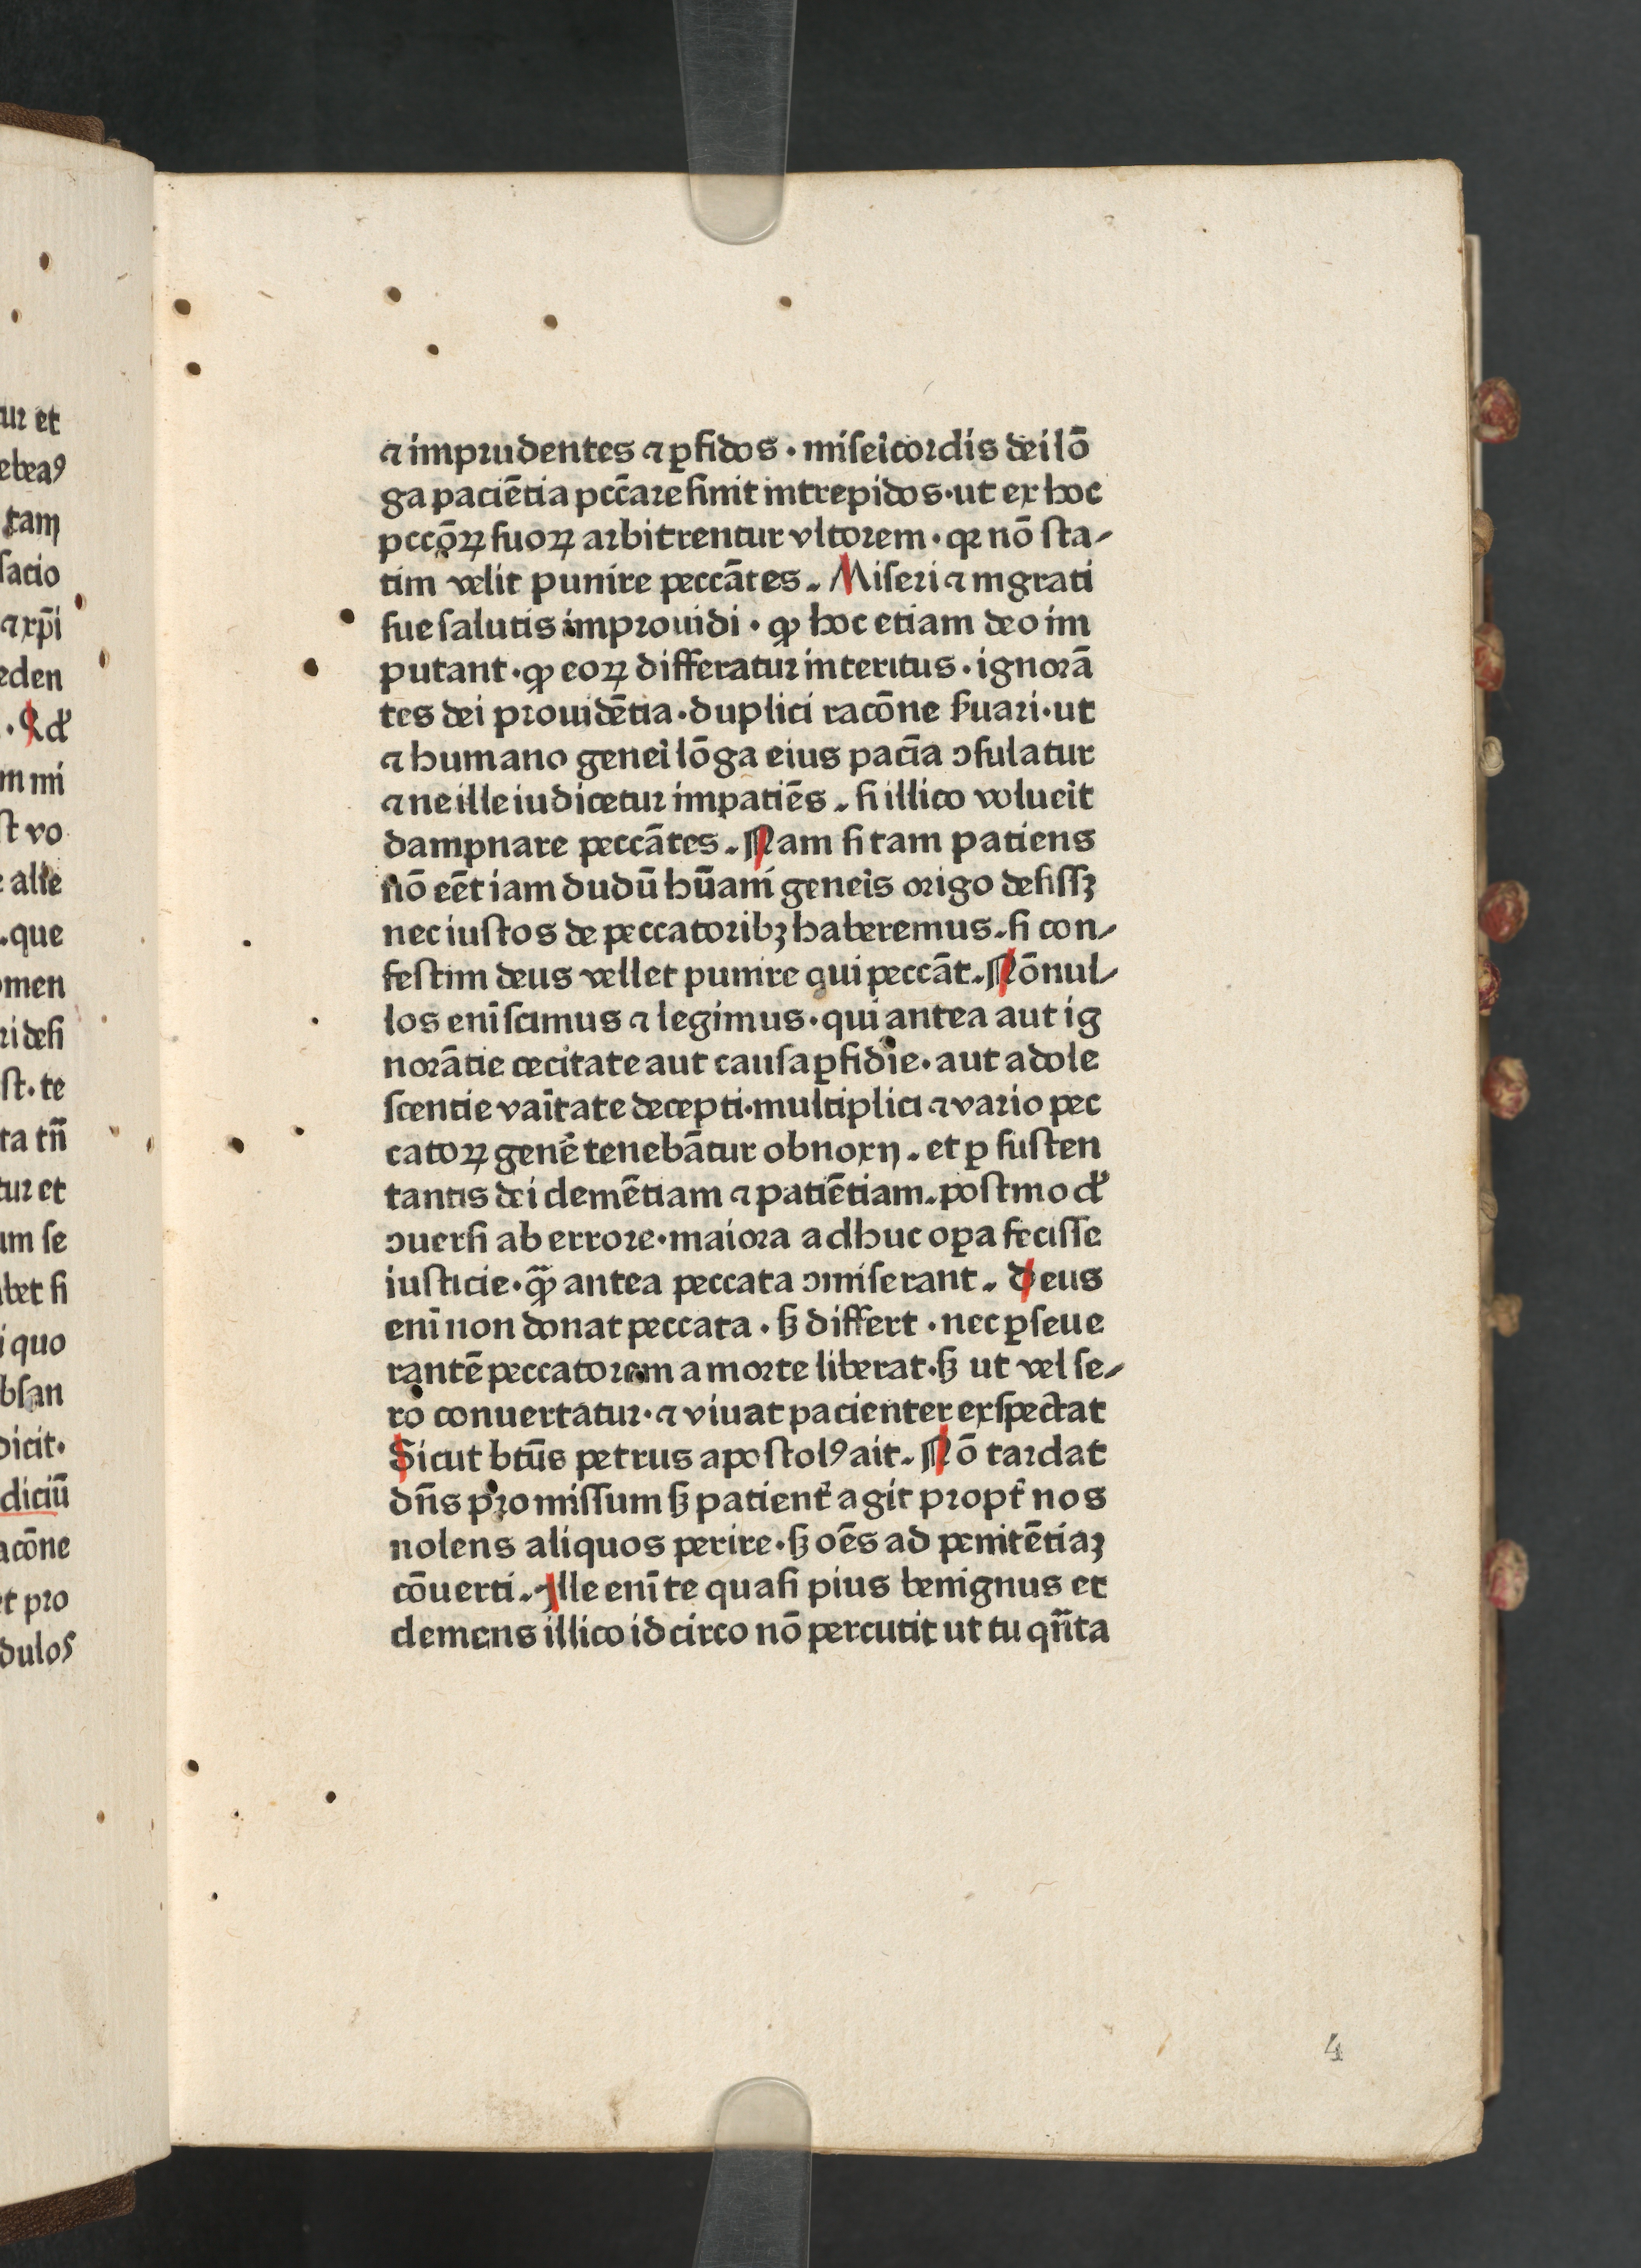 ur et
ebeaꝯ
tam
facio
⁊ xp̄i
eden
. Qd'
m mi
st vo
alie
.que
omen
ri desi
st· te
ta tn̄
tur et
um se
bet si
i quo
bsan
dicit·
diciū
acōne
et pro
dulos
⁊ imprudentes ⁊ ꝑfidos · misēicordis dei lō
ga paciētia pcc̄are sinit intrepidos · ut ex hoc
pccōꝝ suoꝝ arbitrentur vltorem · qꝛ nō sta-
tim velit punire peccātes . Miseri ⁊ ingrati
sue salutis improuidi · ꝙ hoc etiam deo im
putant · ꝙ eoꝝ differatur interitus · ignorā
tes dei prouidētia · duplici racōne s̄uari · ut
⁊ humano genēi lōga eius pacīa ↄsulatur
⁊ ne ille iudicetur impatiēs . si illico voluēit
dampnare peccātes . Nam si tam patiens
nō eēt iam dudū hūani genēis origo desissꝫ
nec iustos de peccatoribꝫ haberemus . si con-
festim deus vellet punire qui peccāt . Nōnul-
los eni̅ scimus ⁊ legimus · qui antea aut ig
norātie cecitate aut causa ꝑfidie · aut adole
scentie vai̅tate decepti · multiplici ⁊ vario pec
catoꝝ genē̓ tenebātur obnoxij . et ꝑ susten
tantis dei clemētiam ⁊ patiētiam . postmod'
ↄuersi ab errore · maiora adhuc oꝑa fecisse
iusticie · qꝫ̄ antea peccata ↄmiserant . Deus
eni̅ non donat peccata · sꝫ differt · nec ꝑseue
rantē peccatorem a morte liberat · sꝫ ut vel se-
ro conuertatur · ⁊ viuat pacienter exspectat
Sicut btūs petrus apostolꝯ ait . Nō tardat
dn̄s promissum sꝫ patient̓ agit propt̓ nos
nolens aliquos perire · sꝫ oēs ad penitētiaꝫ
cōuerti . Ille eni̅ te quasi pius benignus et
clemens illico idcirco nō percutit ut tu qn̄ta
4